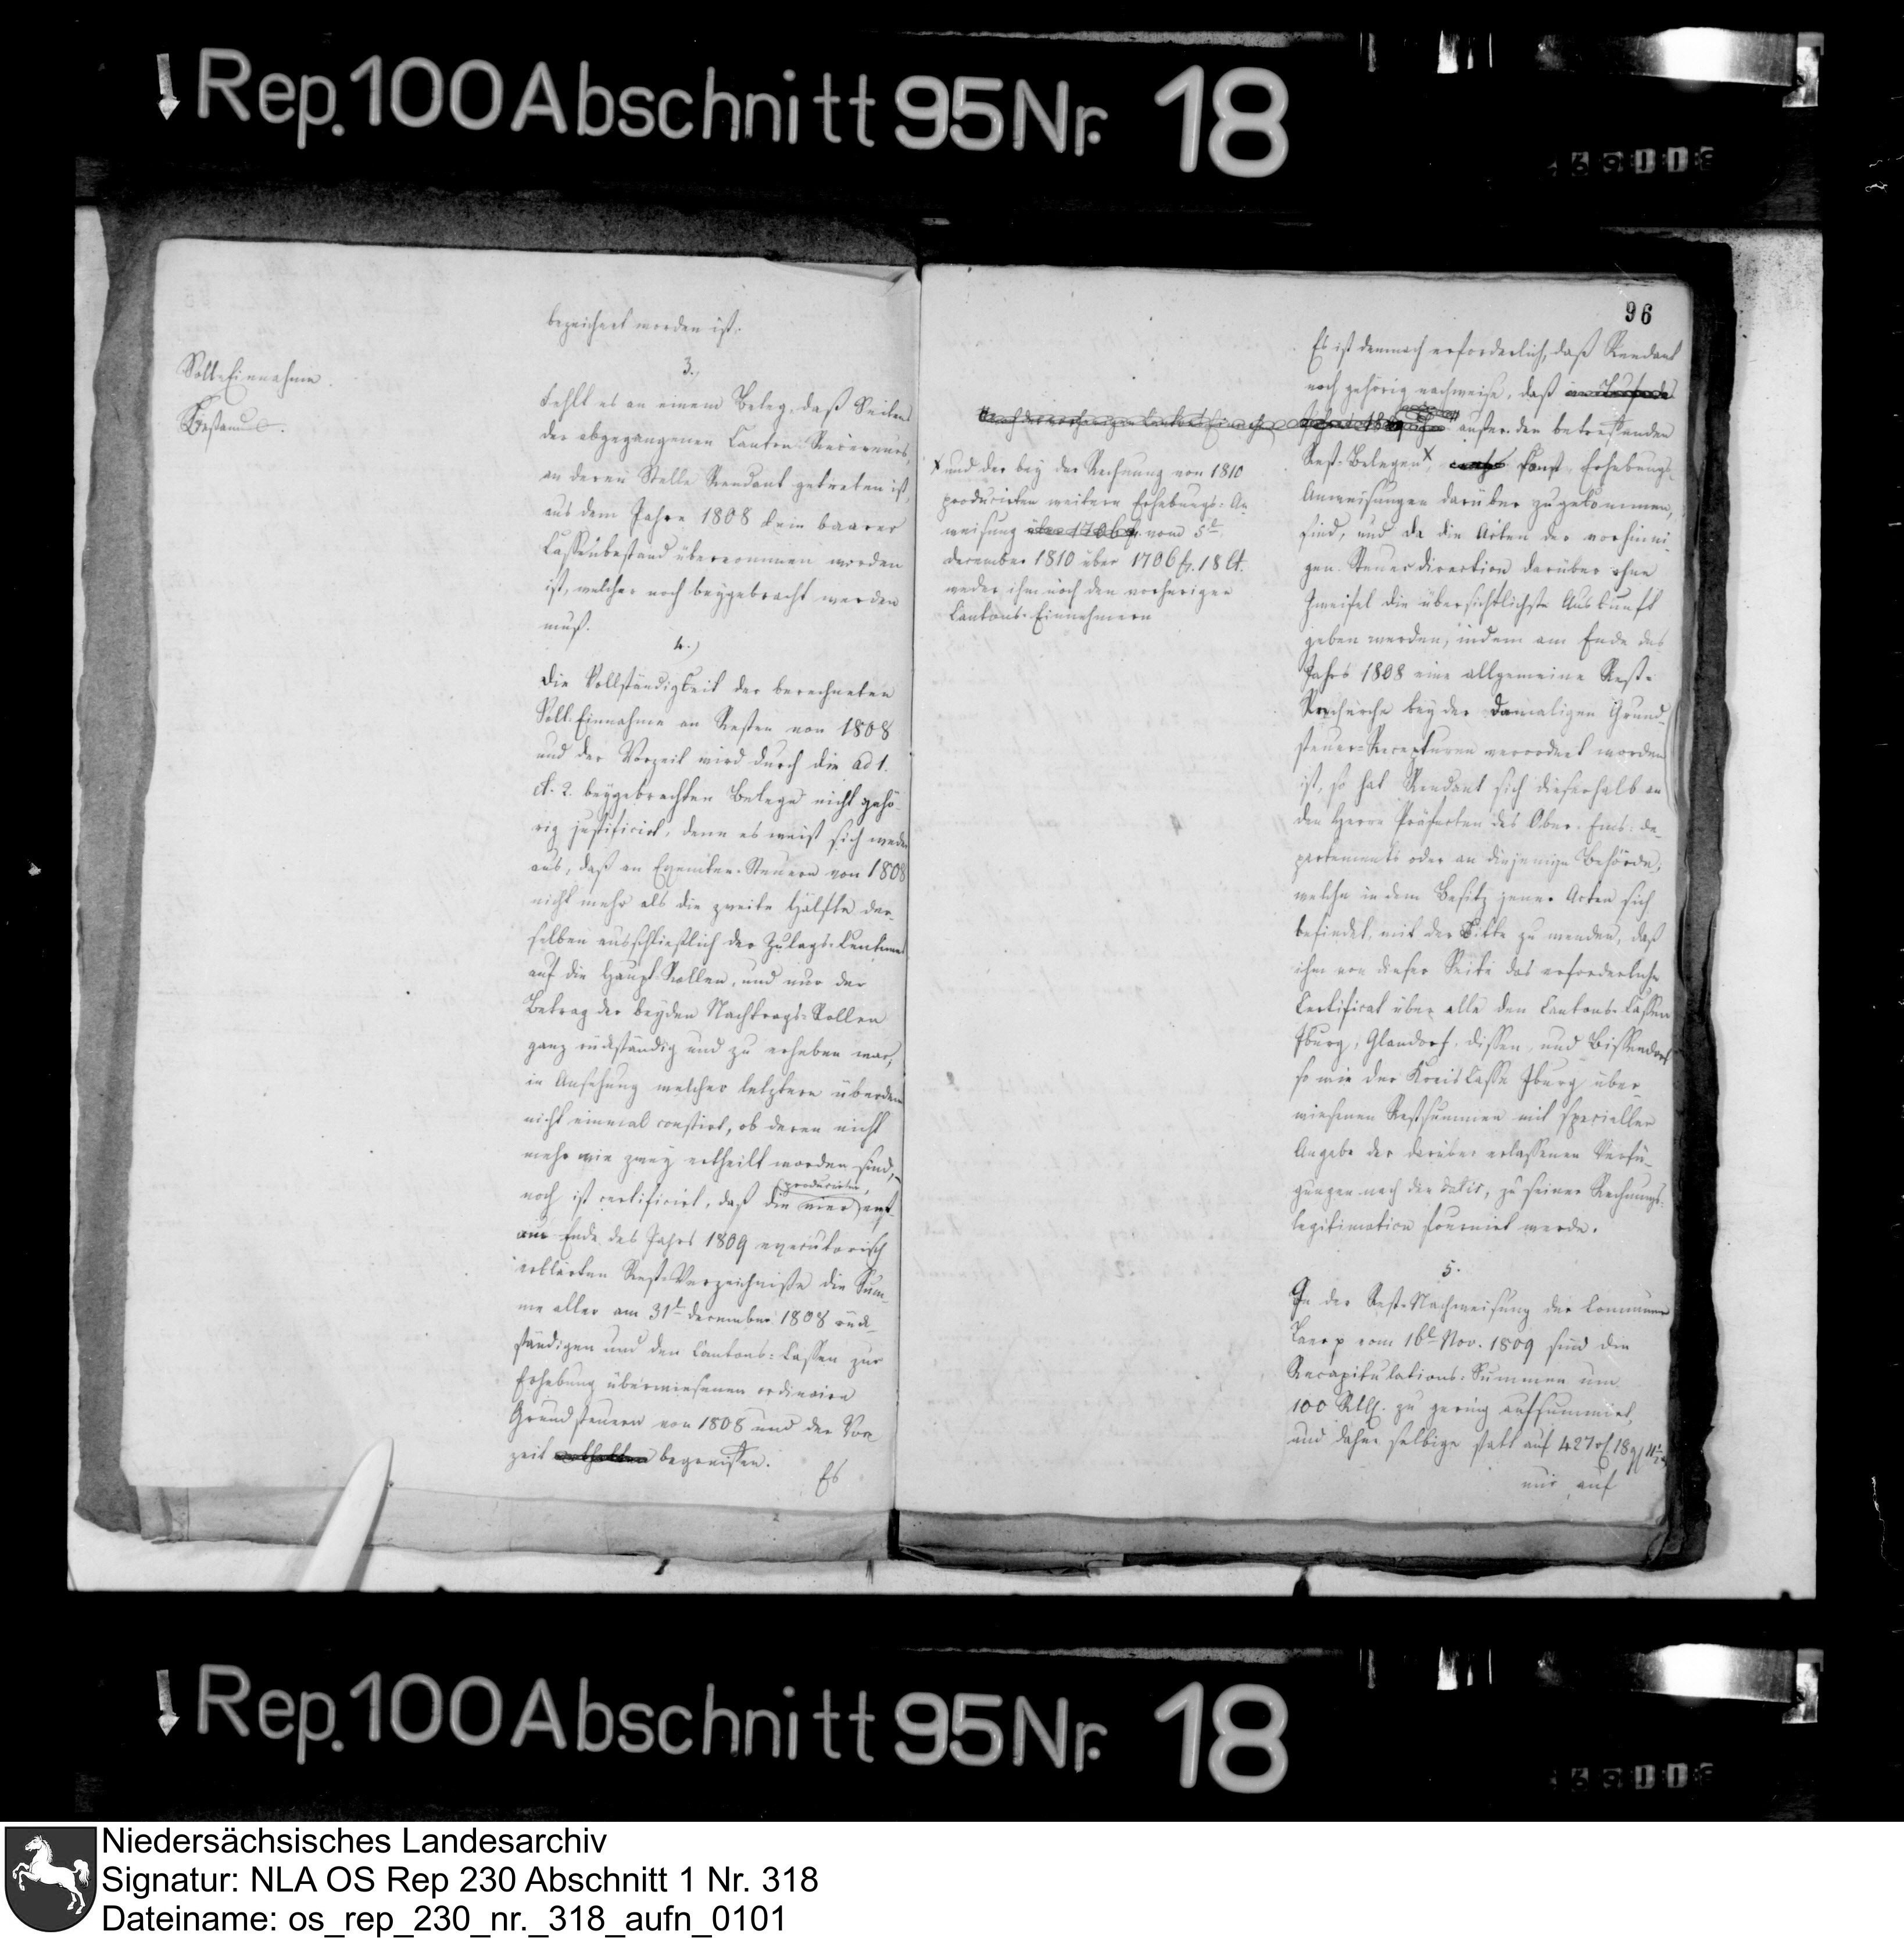 Rep. 100 Abschnitt 95 Nr. 18
bezeichnet worden ist.
Soll Einnahme.
Bestand.
3.,
Fehlt es an einem Beleg, daß Seitens
der abgegangenen Canton-Receveurs,
an deren Stelle Rendant getreten ist,
aus dem Jahre 1808 kein baarer
Cassenbestand übernommen worden
ist, welcher noch beygebracht werden
muß.
4.)
Die Vollständigkeit der berechneten
Soll-Einnahme an Resten von 1808
und der Vorzeit wird durch die ad 1.
et. 2. beygebrachten Belege nicht gehö-
rig justificirt, denn es weist sich weder
aus, daß an Exemten-Steuern von 1808
nicht mehr als die zweite Hälfte der-
selben ausschließlich der Zulags-Centimen
auf die Haupt-Rollen, und nur der
Betrag der beyden Nachtrags-Rollen
ganz rückständig und zu erheben war,
in Ansehung welcher letztern überdem
nicht einmal constirt, ob deren nicht
mehr wie zwey ertheilt worden sind,
producirten,
noch ist certificirt, daß die vier erst
am Ende des Jahrs 1809 executorisch
erklärten Rest-Verzeichnisse die Sum-
me aller am 31t december 1808 rück-
ständigen und den Cantons-Cassen zur
Erhebung überwiesenen ordinairen
Grundsteuern von 1808 und der Vor-
zeit begreiffen.
Es
96
Es ist demnach erforderlich, daß Rendant
noch gehörig nachweise, daß
außer den betreffenden
Rest-Belegen x sonst Erhebungs-
Anweisungen darüber zugekommen,
sind, und da die Acten der vorhini-
gen Steuerdirection darüber ohne
Zweifel die übersichtlichste Auskunft
geben werden, indem am Ende des
Jahrs 1808 eine allgemeine Rest-
Recherche bey der damaligen Grund-
steuer-Recepturen verordnet worden
ist, so hat Rendant sich dieserhalb an
den Herrn Präfecten des Ober-Ems-de-
partements oder an diejenige Behörde,
welche in dem Besitz jener Acten sich
befindet, mit der Bitte zu wenden, daß
ihm von dieser Seite das erforderliche
Certificat über alle den Cantons-Cassen
Iburg, Glandorf, Dissen, und Bissendorf
so wie der Kreiscasse Iburg über-
wiesenen Restsummen mit specieller
Angabe der darüber erlassenen Verfü-
gungen nach den datis, zu seiner Rechnungs-
legitimation fournirt werde.
x und der bey der Rechnung von 1810
producirten weitern Erhebungs-An-
weisung vom 5t
december 1810 über 1706 fr. 18 Ct.
weder ihm noch den vorherigen
Cantons-Einnehmern
5.
In der Rest-Nachweisung der Commune
Laer p vom 16t Nov. 1809 sind die
Recapitulations-Summen um
100 Rtlr. zu gering aufsummirt,
und daher selbige statt auf 427
nur auf
Rep. 100 Abschnitt 95 Nr. 18
Niedersächsisches Landesarchiv
Signatur: NLA OS Rep 230 Abschnitt 1 Nr. 318
Dateiname: os_rep_230_nr._318_aufn_0101